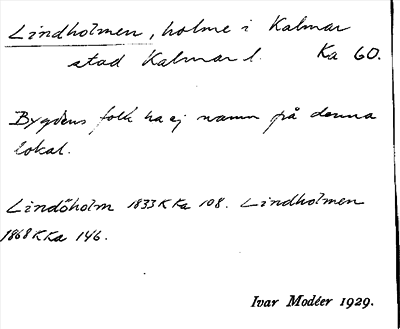 Lindholmen, holme i Kalmar
stad Kalmar l. Ka 60.
Bygdens folk ha ej namn på denna
lokal.
Lindöholm 1833 K Ka 108. Lindholmen
1868 K Ka 146.
Ivar Modéer 1929.